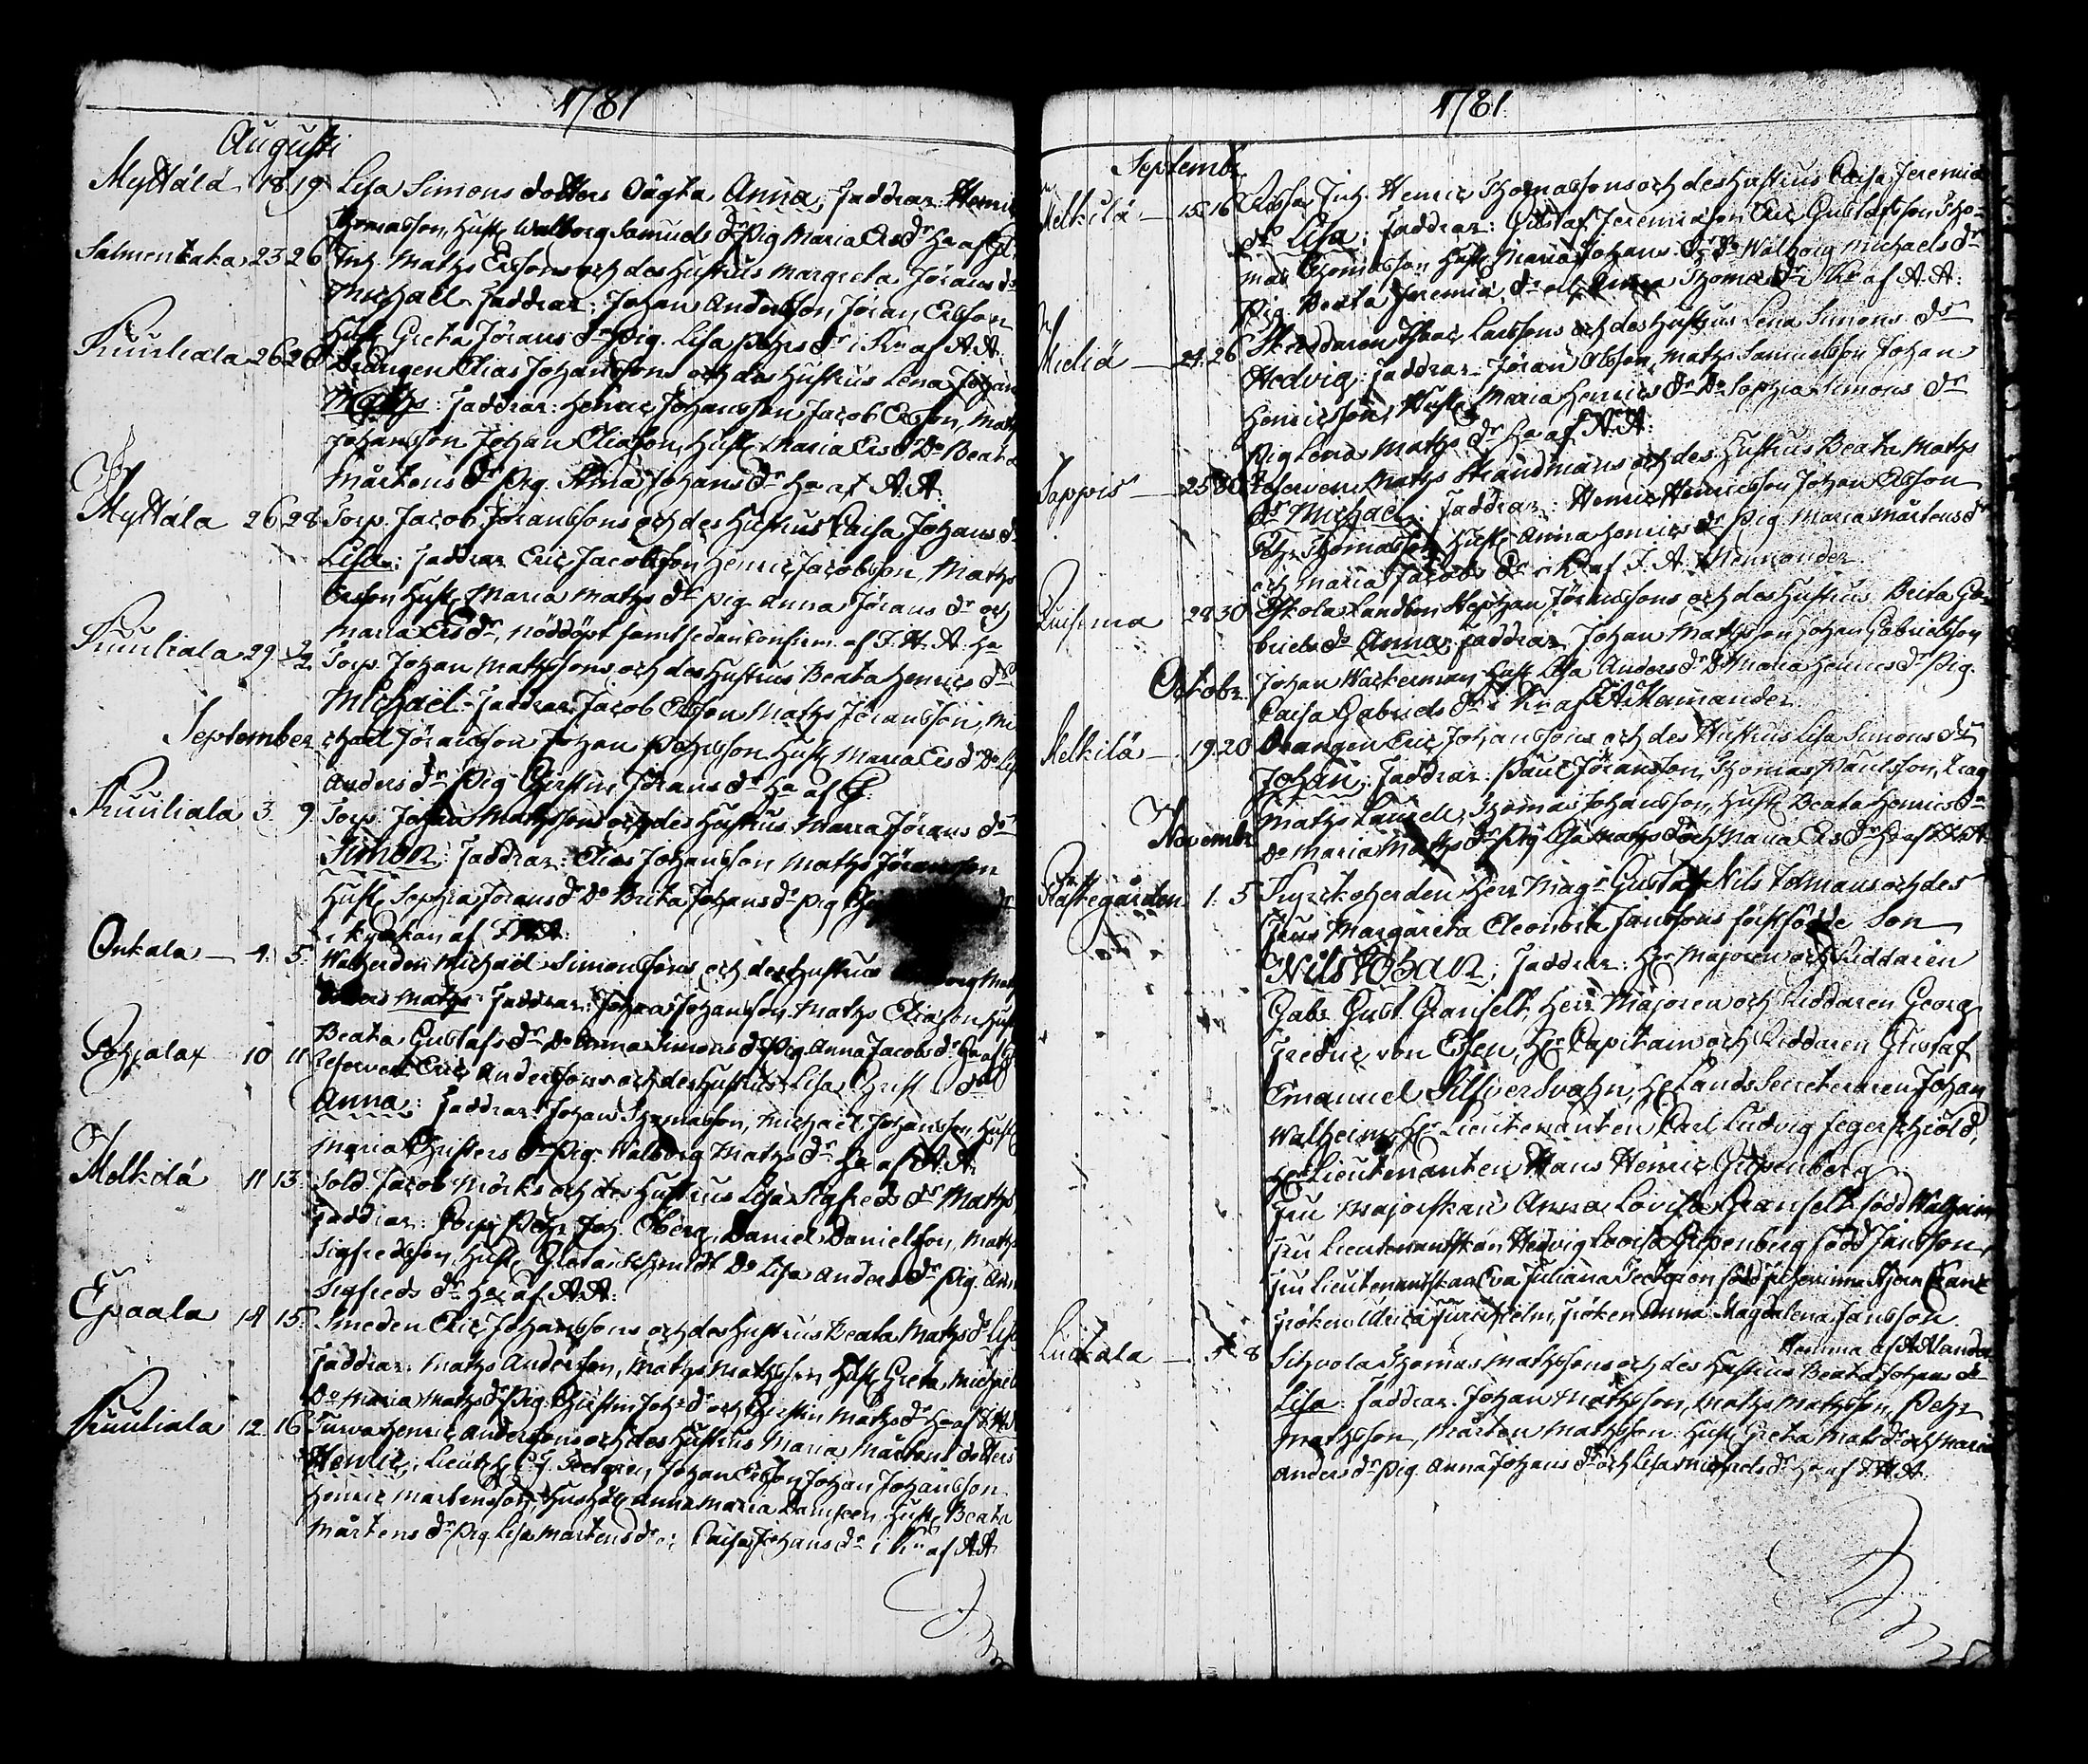 1781
Augusti
Myttälä 18 19 Lisa Simons dotters Oägta Anna; Faddrar: Henric
Thomasson, Hust. Walborg Samuels dr Pig. Maria Ers dr
Salmentaka 23 26 Inh. Maths Ersons och des Hustrus Margreta Jörans dr
Michael Faddrar: Johan Andersson, Jöran Ersson
Hust. Greta Jörans dr Pig. Lisa Pehrs dr i Kn af A.A.
Kuuliala 26 26 Drängen Elias Johanssons och des Hustrus Lena Johans
Maths: Faddrar: Henric Johansson Jacob Ersson, Maths
Johansson Johan Eliasson, Hust. Maria Ers dr Do Beata
Mårtens dr Pig. Anna Johans dr He af A.A.
Myttälä 26 28 Torp. Jacob Joranssons och des Hustrus Caisa Johans d
Lisa: Faddrar Eric Jacobsson Henric Jacobsson, Maths
Ersson Hust. Maria Maths dr Pig. Anna Jörans dr och
Maria Ers dr, nöddöpt samt sedan confirm. af F.H.A. He
Kuuliala 29 2 Torp. Johan Mathssons och des Hustrus Beata Henrics dr
Michaël Faddrar Jacob Ersson Maths Jöransson, Mi
September chael Jöransson Johan Pehrsson Hust. Maria Ers d Do
Anders dr Pig Cherstin Jörans dr He af
Kuuliala 3 9 Torp. Johan Mathssons och des Hustrus Maria Jörans dr
Simon: Faddrar: Elias Johansson Maths Jöransson
Hust. Sophia Jörans dr Do Brita Johans dr Pig
i kyrkan af F.H.A.
Onkala 4. 5. Walherden Michaël Simonssons och des Hustrus
Maths Faddrar: Johansson Maths Eliasson Hust
Beata Gustafs dr Do Anna Simons dr Pig. Anna Jacobs dr
Pohjalax 10 11 Reserven Eric Anderssons och des Hustrus Lisa Christ dr
Anna: Faddrar: Johan Thomasson, Michaël Johansson, Hust
Maria Christers dr Pig. Walborg Maths dr He af A.A.
Melkilä 11 13 Sold. Jacob Mörks och des Hustrus Lisa Sigfreds dr Maths
Faddrar: Pehr Joh. Öberg, Daniel Danielsson, Maths
Sigfredsson, Hust. Schmidt Do Lisa Anders dr Pig. Ann
Sigfreds dr He af A.A.
Epaala 14 15 Smeden Eric Johanssons och des Hustrus Beata Maths dr Lisa
Faddrar: Maths Andersson, Maths Mathsson, Hust. Greta Michels
Do Maria Maths dr Pig. Christin Joh dr och Christin Maths dr He af F.H.A.
Kuuliala 12 16 Henric Anderssons och des Hustrus Maria Mårtens dotters
Henric; Lieut. Johan Ersson Johan Johansson
Henric Mårtensson, Anna Maria Hust. Beata
Mårtens dr Pig Lisa Mårtens dr Caisa Johans dr i Kn af AA
1781
Septembr.
Melkilä 15 16 Inh. Henric Thomassons och des Hustrus Caisa Jeremiæ
dr Lisa; Faddrar: Gustaf Jeremiasson Eric Gustafsson, Tho-
mas Thomasson Hust. Maria Johans dr Do Walborg Michaels dr
Pig. Beata Jeremiæ dr och Anna Thomæ dr i Kn af A.A.
24. 26 Skräddaren Isaac Larssons och des Hustrus Lena Simons dr
Hedvig; Faddrar Jöran Olsson, Maths Samuelsson Johan
Henricsson, Hust. Maria Henrics dr Do Sophia Simons dr
Pig Lena Maths dr He af A.A.
Sappis 25 30 Reserven Maths Strandmans och des Hustrus Beata Maths
dr Michaël: Faddrar: Henric Henricsson Johan Ersson
Thomasson, Hust. Anna Henrics dr Pig. Maria Mårtens dr
och Maria Jacobs dr i K af F.A. Mennander
28 30 Landbon Stephan Jöranssons och des Hustrus Brita Ga-
briels dr Anna; Faddrar Johan Mathsson Johan Gabrielsson
Octobr. Johan Wackerman, Hust. Lisa Anders dr Do Maria Henrics dr Pig.
Caisa Gabriels dr i Kn af F.A. Mennander
Melkilä 19 20 Drängen Eric Johanssons och des Hustrus Lisa Simons dr
Johan: Faddrar: Paul Jöransson, Thomas Paulsson,
Maths Thomas Johansson, Hust. Beata Henrics dr
Novembr. Do Maria Maths dr Pig Lisa Maths dr och Maria Ers dr He af F.H.A.
Prästegården 1. 5 Kyrckoherden Herr Magr Gustaf Nils Tolmans och des
Frus Margareta Eleonora Janssons förstfödde Son
Nils Johan; Faddrar: Hr Majoren och Riddaren
Gabr. Gust. Granfelt, Herr Majoren och Riddaren Georg
Fredric von Essen, Hr Capitain och Riddaren Gustaf
Emanuel Silfversvahn, Hr Lands Secreteraren Johan
Walheim, Hr Lieutenanten Carl Ludvig Segerschiöld,
Hr Lieutenanten Hans Henric Gripenberg
Fru Majorskan Anna Lovisa Granfelt född Walheim
Fru Lieutenantskan Hedvig Lovisa Gripenberg född Jansson,
Fru Lieutenantskan Eva Juliana född
Fröken Ulrica Fröken Anna Magdalena Jansson.
Hemma af A. Alander
8 Thomas Mathssons och des Hustrus Beata Johans dr
Lisa: Faddrar. Johan Mathsson, Maths Mathsson, Pehr
Mathsson, Mårten Mathsson Hust. Greta Mats dr och Maria
Anders dr Pig Anna Johans dr och Lisa Michels dr He af F.H.A.